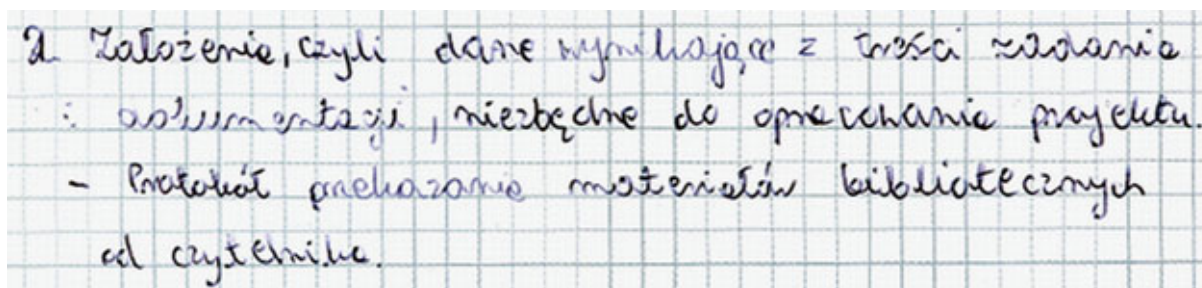 2. Założenia, czyli dane wynikające z treści zadania
i dokumentacji, niezbędne do opracowania projektu.
- Protokół przekazania materiałów bibliotecznych
od czytelnika.